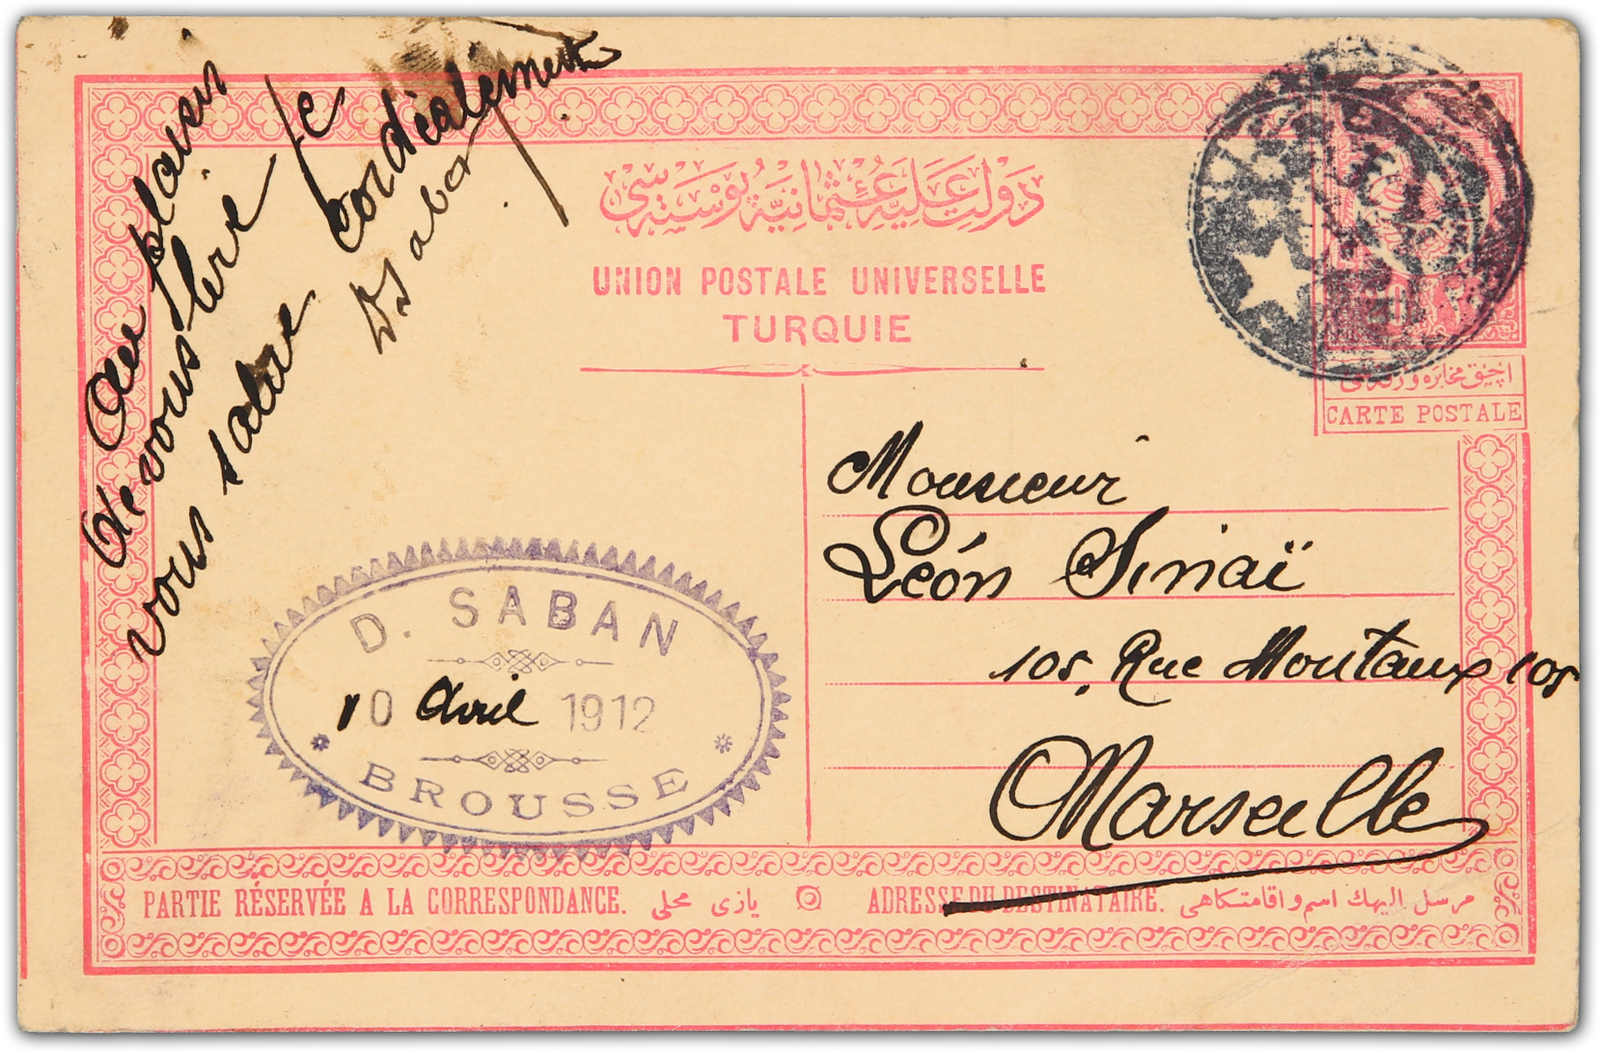 Au plaisir
de vous lire je
vous salue cordialement
D Saban
دولت عليه عثمانيه پوسته سى
UNION POSTALE UNIVERSELLE
TURQUIE
آچيق مخابره ورقه سى
CARTE POSTALE
Monsieur
Léon Sinaï
105, Rue Montaux 105
Marseille
D. SABAN
10 Avril 1912
BROUSSE
PARTIE RÉSERVÉE A LA CORRESPONDANCE. يازى محلى
ADRESSE DU DESTINATAIRE. مرسل اليهك اسم و اقامتكاهى